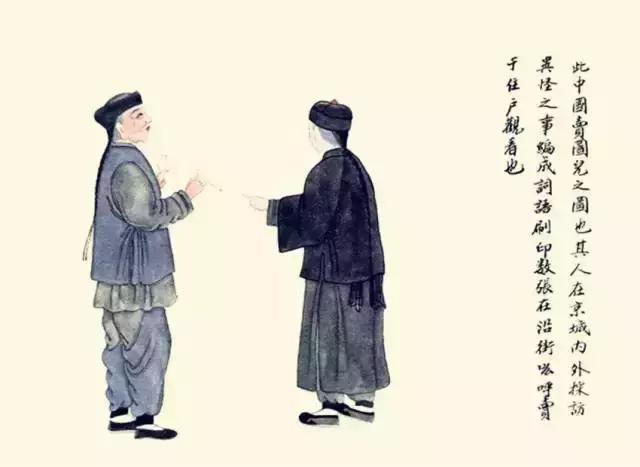 此中國賣圖兒之圖也其人在京城内外採訪
異怪之事編成詞語刷印数張在沿街吆呼賣
于住户觀看也